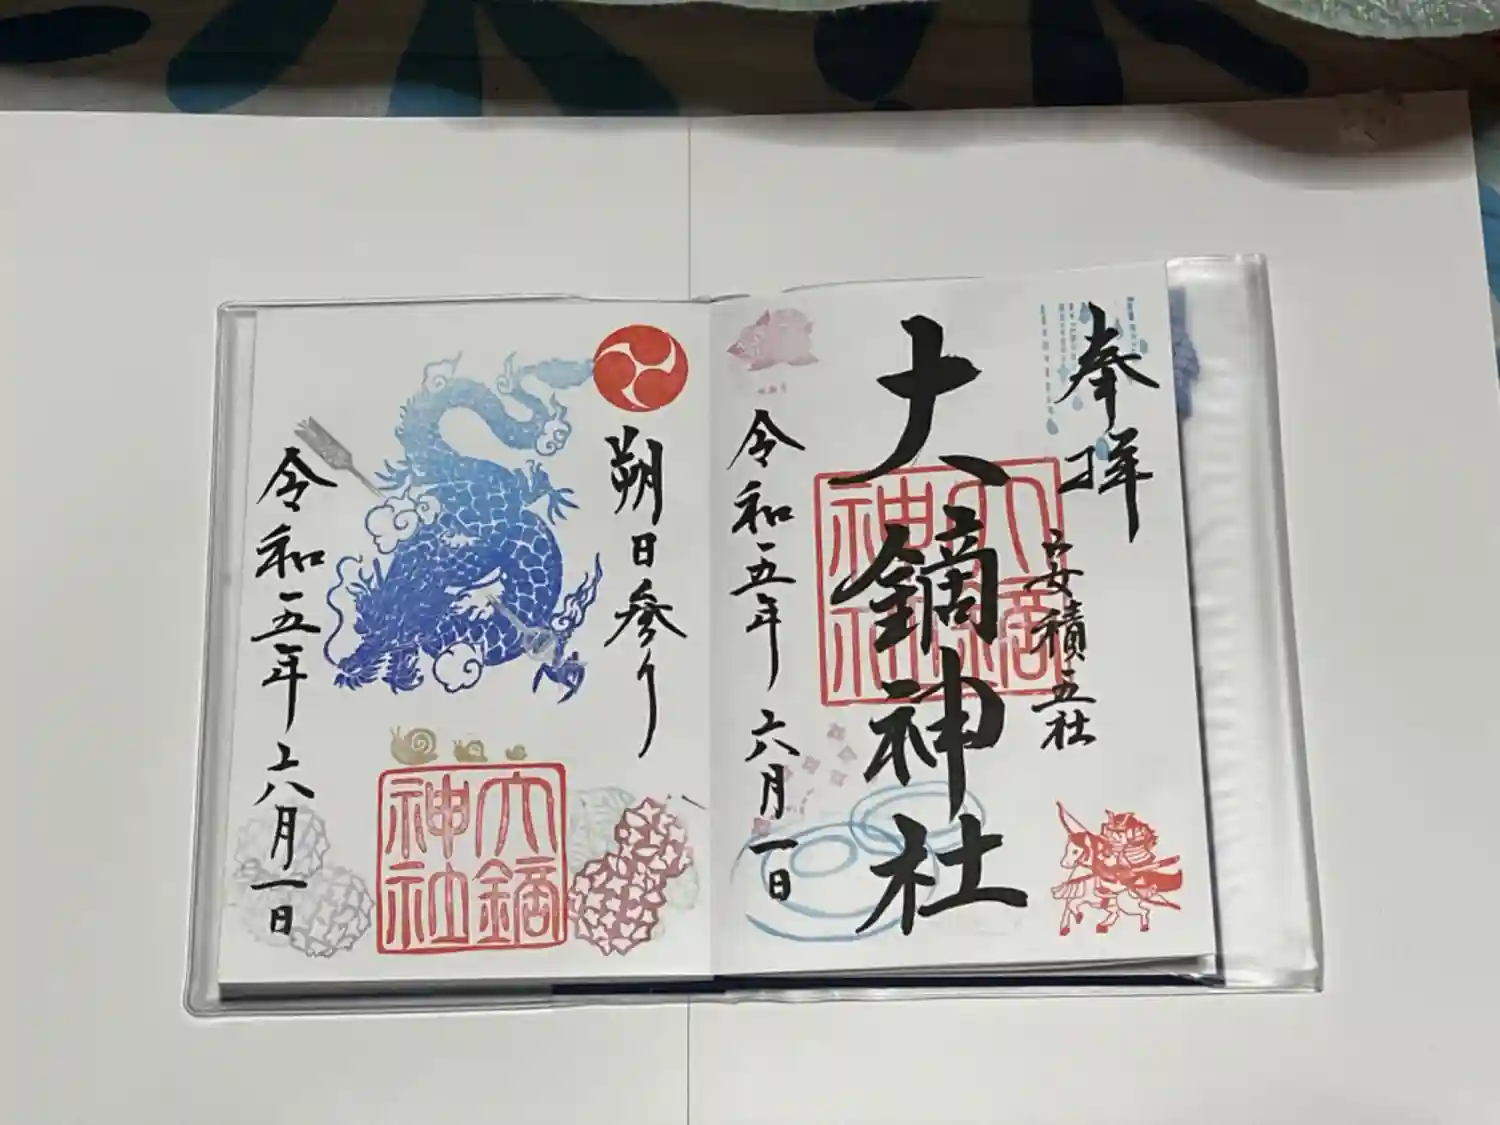 奉拝
安積五社
大鏑神社
大鏑神社
令和五年六月一日
朔日参り
大鏑神社
令和五年六月一日